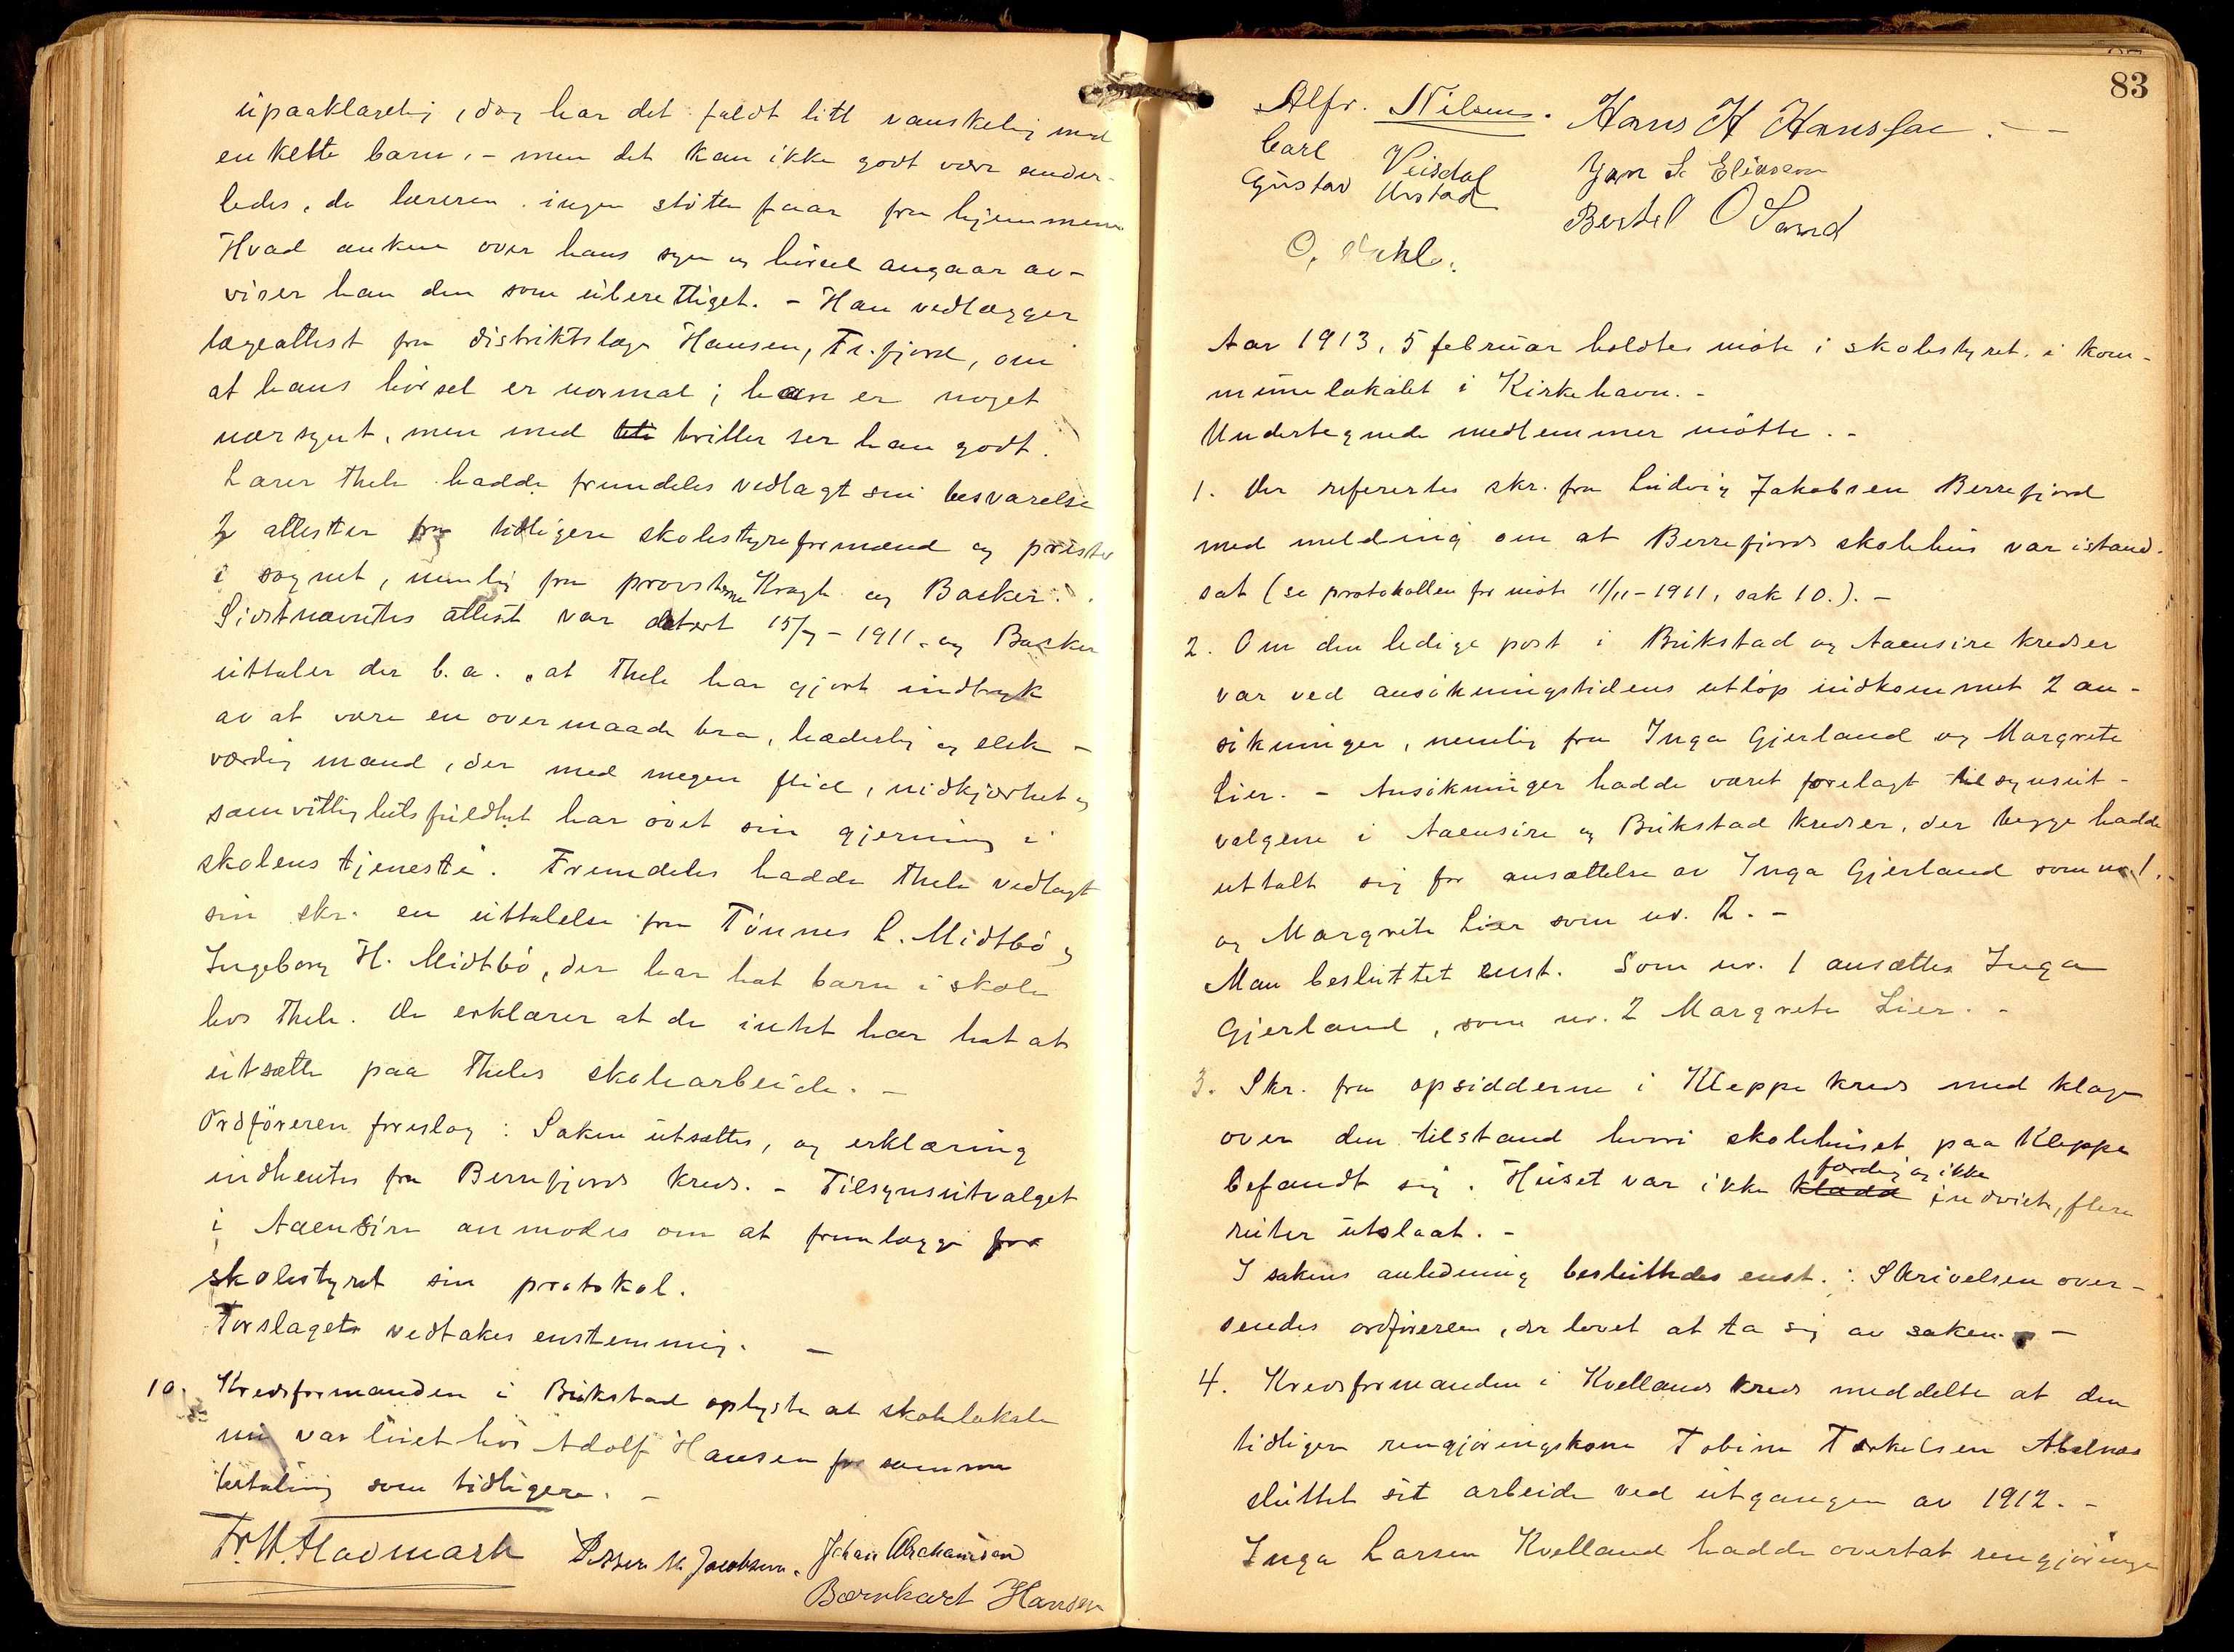 upaaklagelig, dog har det faldt litt vanskelig med
enkelte barn, - men det kan ikke godt være ander-
ledes, da læreren ingen støtte faar fra hjemmene
Hvad anken over hans syn og hørsel angaar av-
viser han den som uberettiget. - Han vedlægger
lægeattest fra distriktslæge Hansen, Fl.fjord, om
at hans hørsel er normal; han er noget
nærsynt, men med briller ser han godt.
Lærer Thele hadde fremdeles vedlagt sin besvarelse
2 attester fra tidligere skolestyreformænd og prester
i sognet, nemlig fra provsterne Kragh og Backer.
Sidstnævntes attest var datert 15/7 - 1911 og Backer
uttaler der b.a. "at Thele har gjort indtryk
av at være en overmaade bra, hæderlig og elsk-
værdig mand, der med megen flid, nidkjærhet og
samvittighetsfuldhet har øvet sin gjerning i
skolens tjeneste". Fremdeles hadde Thele vedlagt
sin skr. en uttalelse fra Tønnes L. Midtbø og
Ingeborg H. Midtbø, der har hat barn i skole
hos Thele. De erklærer at de intet har hat at
utsætte paa Theles skolearbeide. -
Ordføreren foreslog: Saken utsættes, og erklæring
indhentes fra Berrefjords kreds. - Tilsynsutvalget
i Aaensire anmodes om at fremlægge for
skolestyret sin protokol.
Forslaget vedtakes enstemmig. -
10. Kredsformanden i Bukstad oplyste at skolelokale
nu var leiet hos Adolf Hansen for samme
betaling som tidligere. -
Fr. W. Stadmark Johan Abrahamsen
Bærnhart Hansen
83
Alfr. Nilsen. Hans H Hanssen. -
Carl Veisdal
Gustav Urstad
Bertel O Sand
Aar 1913, 5 februar holdtes møte i skolestyret i kom-
munelokalet i Kirkehavn. -
Undertegnede medlemmer møtte. -
1. Der refertes skr. fra Ludvig Jakobsen Berrefjord
med melding om at Berrefjords skolehus var istand-
sat (se protokollen for møte 11/11 - 1911, sak 10.). -
2. Om den ledige post i Bukstad og Aaensire kredser
var ved ansøkningstidens utløp indkommet 2 an-
søkninger, nemlig fra Inga Gjerland og Margrete
Lier. - Ansøkninger hadde været forelagt tilsynsut-
valgene i Aaensire og Bukstad kredser, der begge hadde
uttalt sig for ansættelse av Inga Gjerland som nr. 1.
og Margrete Lier som nr. 2. -
Man besluttet enst. Som nr. 1 ansættes Inga
Gjerland, som nr. 2 Margrete Lier. -
3. Skr. fra opsidderne i Kleppe kreds med klage
over den tilstand hvori skolehuset paa Kleppe
befandt sig. Huset var ikke kladd færdig og ikke indviet, flere
ruter utslaat. -
I sakens anledning besluttedes enst.: Skrivelsen over-
sendes ordføreren, der lovet at ta sig av saken. -
4. Kredsformanden i Kvellands kreds meddelte at den
tidligere rengjøringskone Tobine Terkelsen Abelnes
sluttet sit arbeide ved utgangen av 1912. -
Inga Larsen Kvelland hadde overtat rengjøringen